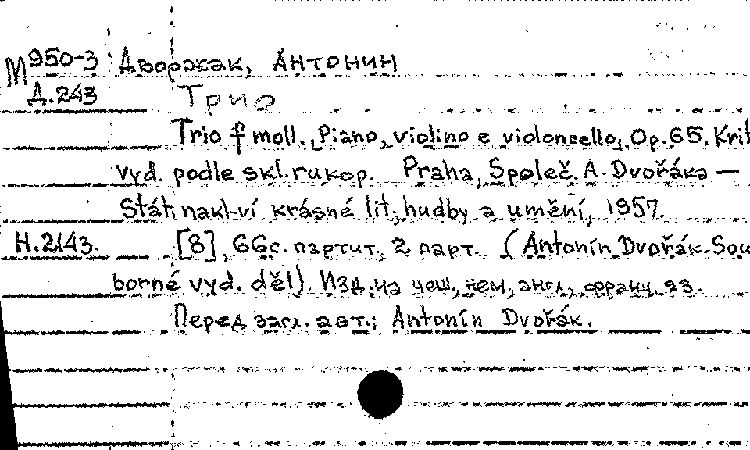 М 950-3 Дворжак, Антонин
Д.243 Трио
Trio f moll. Piano, violino e violoncello, Op. 65. Krit
vyd. podle skl. rukop. Praha, Společ. A. Dvořáka —
Stát. nakl-ví krásné lit., hudby a umění, 1957
Н.2143. [8], 66с. партит., 2 парт. (Antonín Dvořák. Sou
borné vyd. děl). Изд. на чеш., нем., англ., франц. яз.
Перед загл. авт.: Antonín Dvořák.